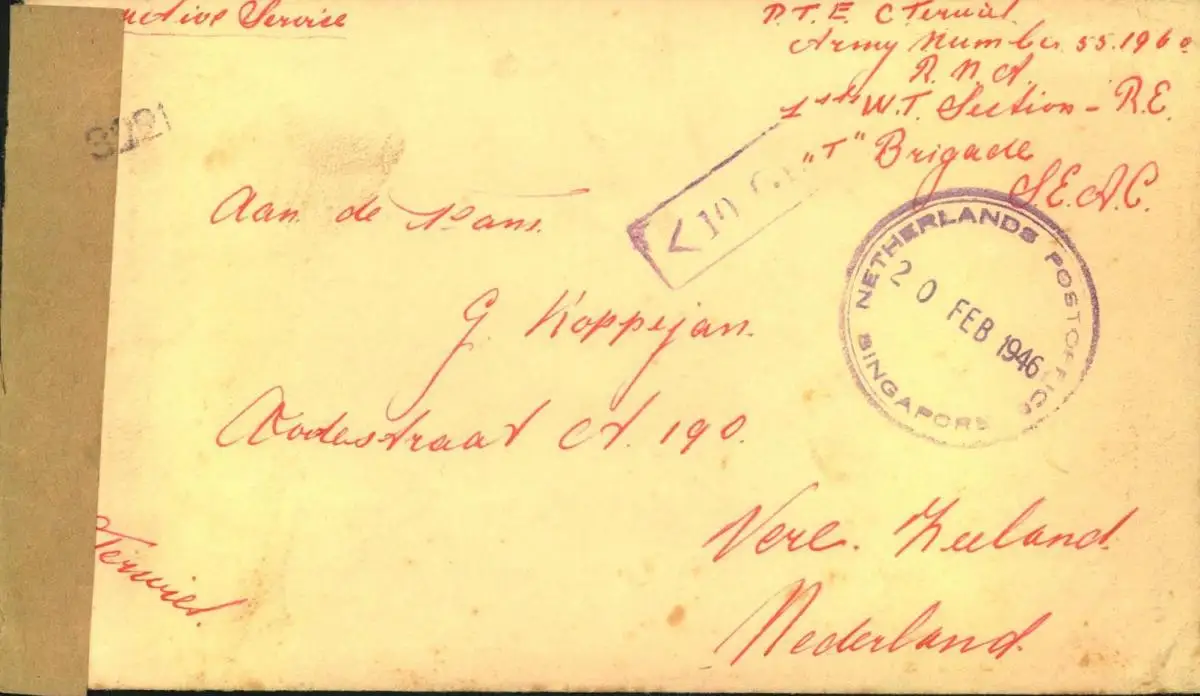 Active Service
P.T.E. C Terwiel.
Army Number 55.1960
R.N.A.
1ste W.T. Section - R.E.
"T" Brigade
S.E.A.C.
3021
Aan de
< 10 G
NETHERLANDS POSTOFFICE
20 FEB 1946
SINGAPORE
G. Koppejan.
A. 190.
Vere. Zeeland.
Nederland.
Terwiel.